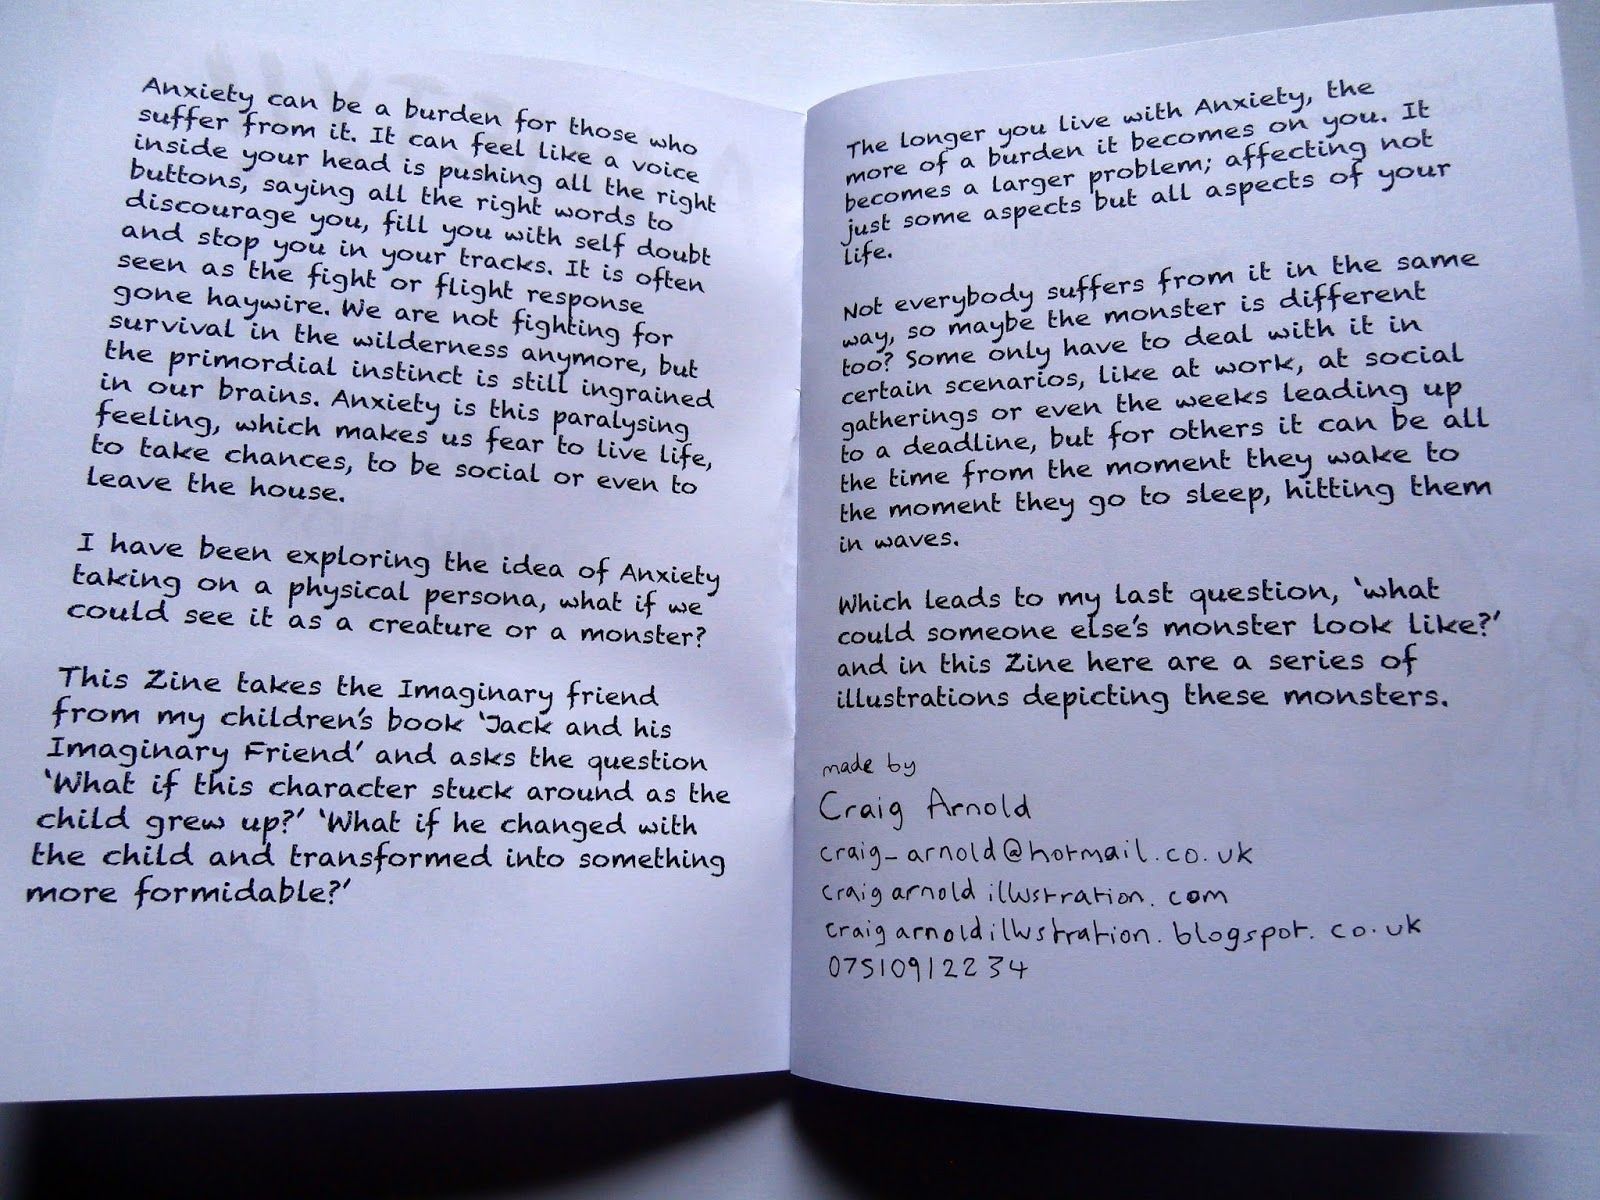 Anxiety can be a burden for those who
suffer from it. It can feel like a voice
inside your head is pushing all the right
buttons, saying all the right words to
discourage you, fill you with self doubt
and stop you in your tracks. It is often
seen as the fight or flight response
gone haywire. We are not fighting for
survival in the wilderness anymore, but
the primordial instinct is still ingrained
in our brains. Anxiety is this paralysing
feeling, which makes us fear to live life,
to take chances, to be social or even to
leave the house.
I have been exploring the idea of Anxiety
taking on a physical persona, what if we
could see it as a creature or a monster?
This Zine takes the Imaginary friend
from my children's book 'Jack and his
Imaginary Friend' and asks the question
'What if this character stuck around as the
child grew up?' 'What if he changed with
the child and transformed into something
more formidable?'
The longer you live with Anxiety, the
more of a burden it becomes on you. It
becomes a larger problem; affecting not
just some aspects but all aspects of your
life.
Not everybody suffers from it in the same
way, so maybe the monster is different
too? Some only have to deal with it in
certain scenarios, like at work, at social
gatherings or even the weeks leading up
to a deadline, but for others it can be all
the time from the moment they wake to
the moment they go to sleep, hitting them
in waves.
Which leads to my last question, 'what
could someone else's monster look like?'
and in this Zine here are a series of
illustrations depicting these monsters.
made by
Craig Arnold
craig_arnold@hotmail.co.uk
craigarnoldillustration.com
craigarnoldillustration.blogspot.co.uk
07510912234